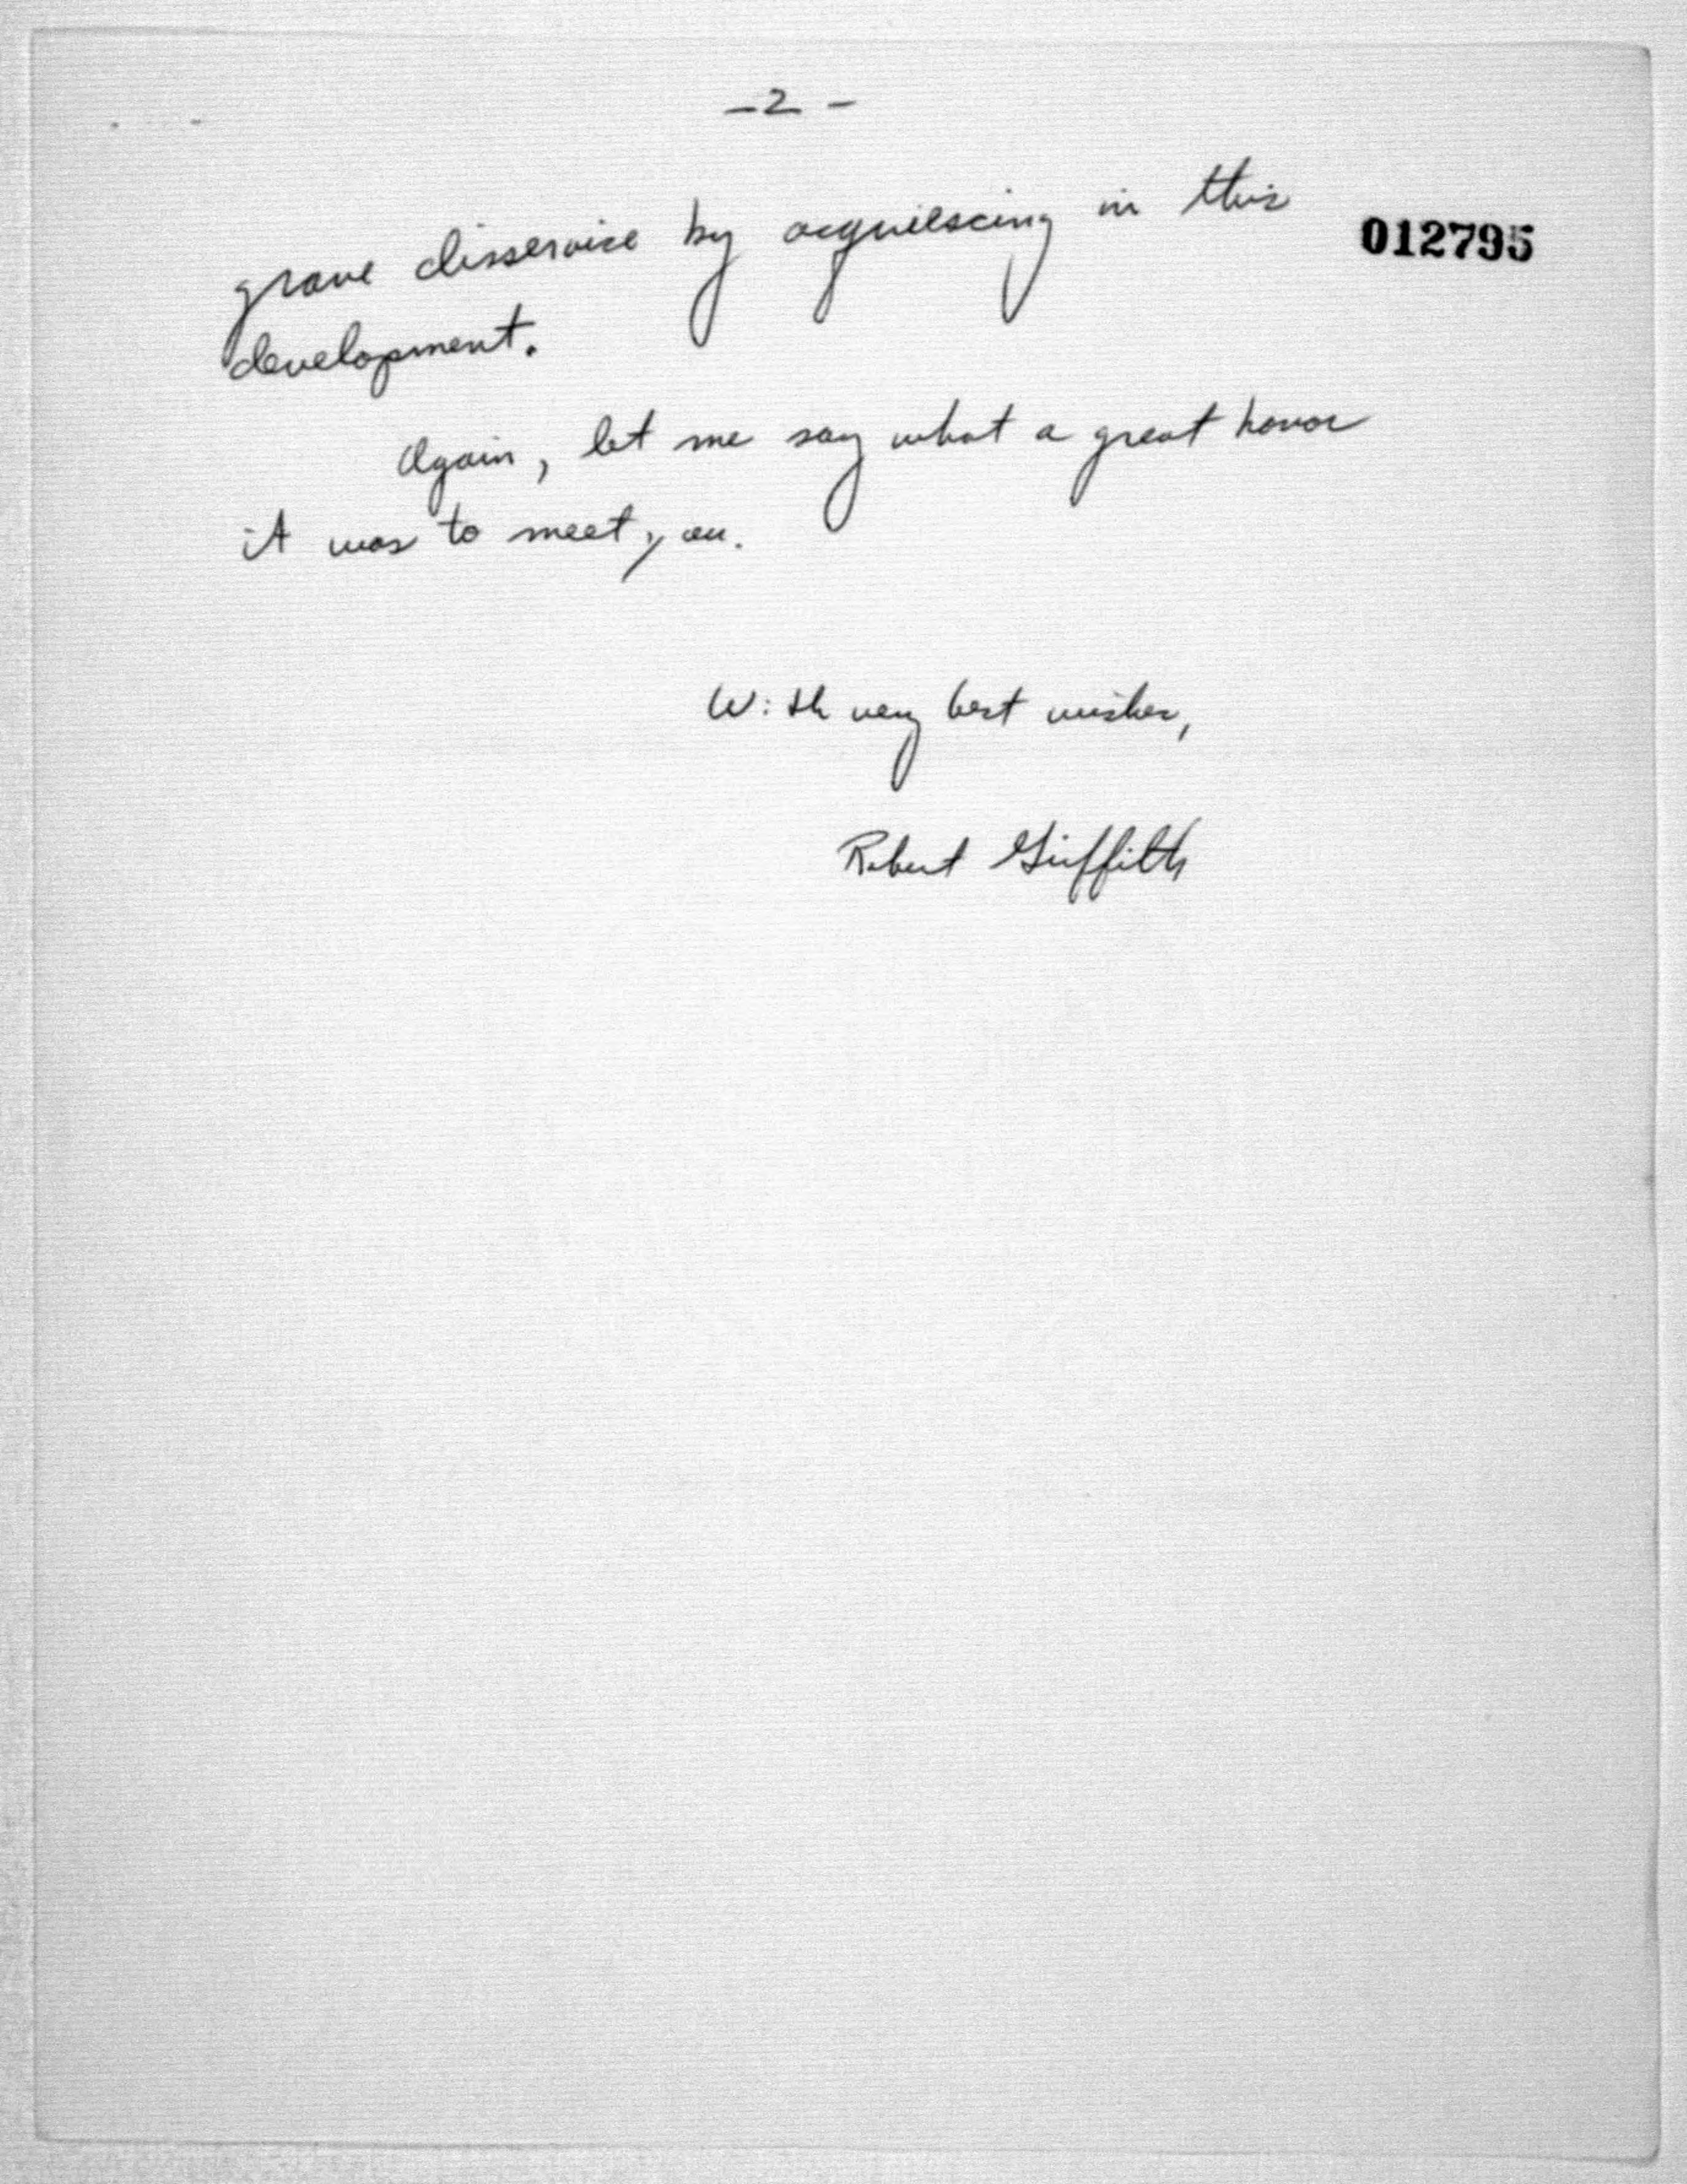 -2-
grave disservice by acquiescing in this
012795
development.
Again, let me say what a great honor
it was to meet you.
With very best wishes,
Robert Griffith